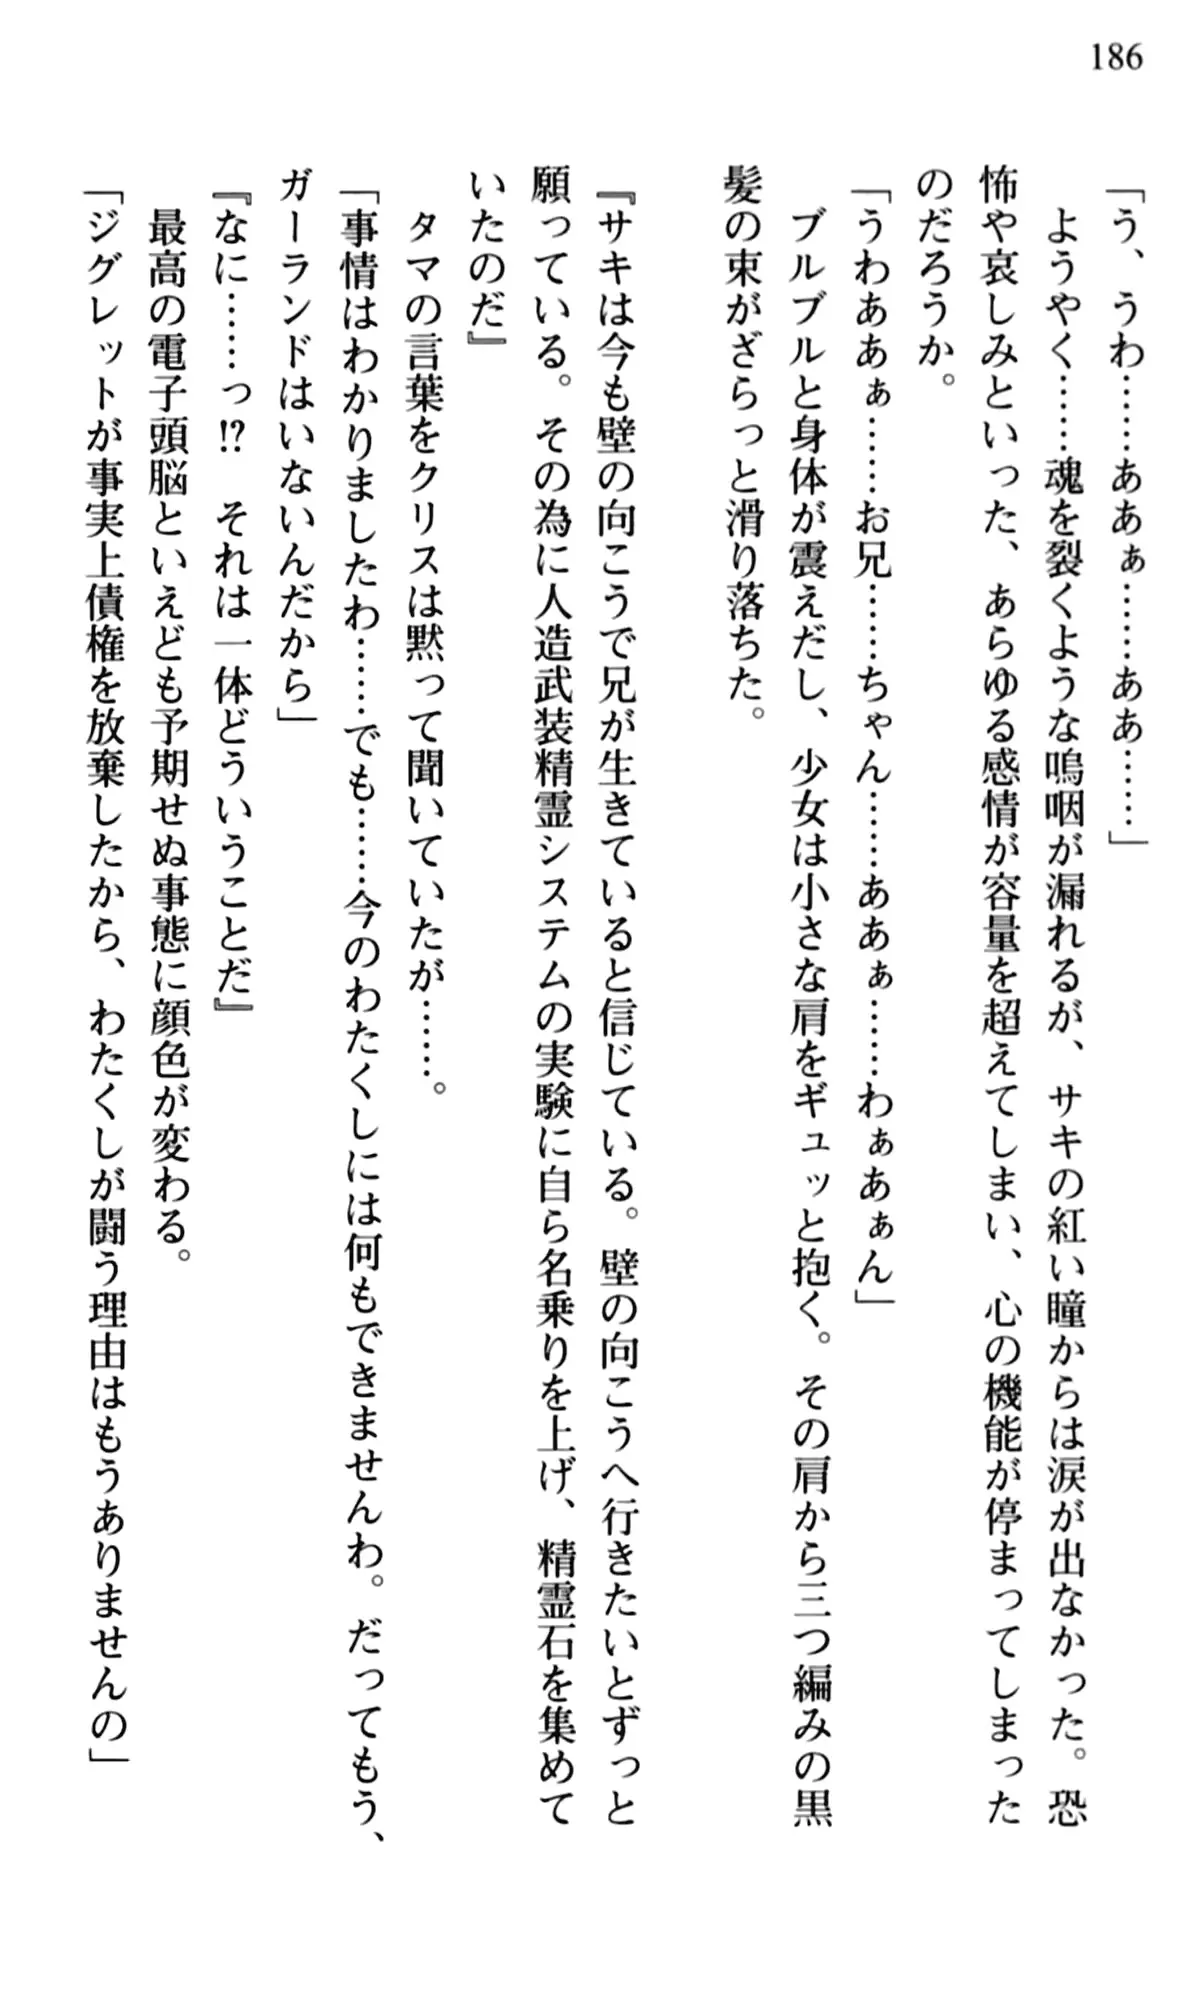 186
「う、うわ……ああぁ……ああ……」
　ようやく……魂を裂くような嗚咽が漏れるが、サキの紅い瞳からは涙が出なかった。恐
怖や哀しみといった、あらゆる感情が容量を超えてしまい、心の機能が停まってしまった
のだろうか。
「うわああぁ……お兄……ちゃん……ああぁ……わぁあぁん」
　ブルブルと身体が震えだし、少女は小さな肩をギュッと抱く。その肩から三つ編みの黒
髪の束がざらっと滑り落ちた。
『サキは今も壁の向こうで兄が生きていると信じている。壁の向こうへ行きたいとずっと
願っている。その為に人造武装精霊システムの実験に自ら名乗りを上げ、精霊石を集めて
いたのだ』
　タマの言葉をクリスは黙って聞いていたが……。
「事情はわかりましたわ……でも……今のわたくしには何もできませんわ。だってもう、
ガーランドはいないんだから」
『なに……っ!?　それは一体どういうことだ』
　最高の電子頭脳といえども予期せぬ事態に顔色が変わる。
「ジグレットが事実上債権を放棄したから、わたくしが闘う理由はもうありませんの」